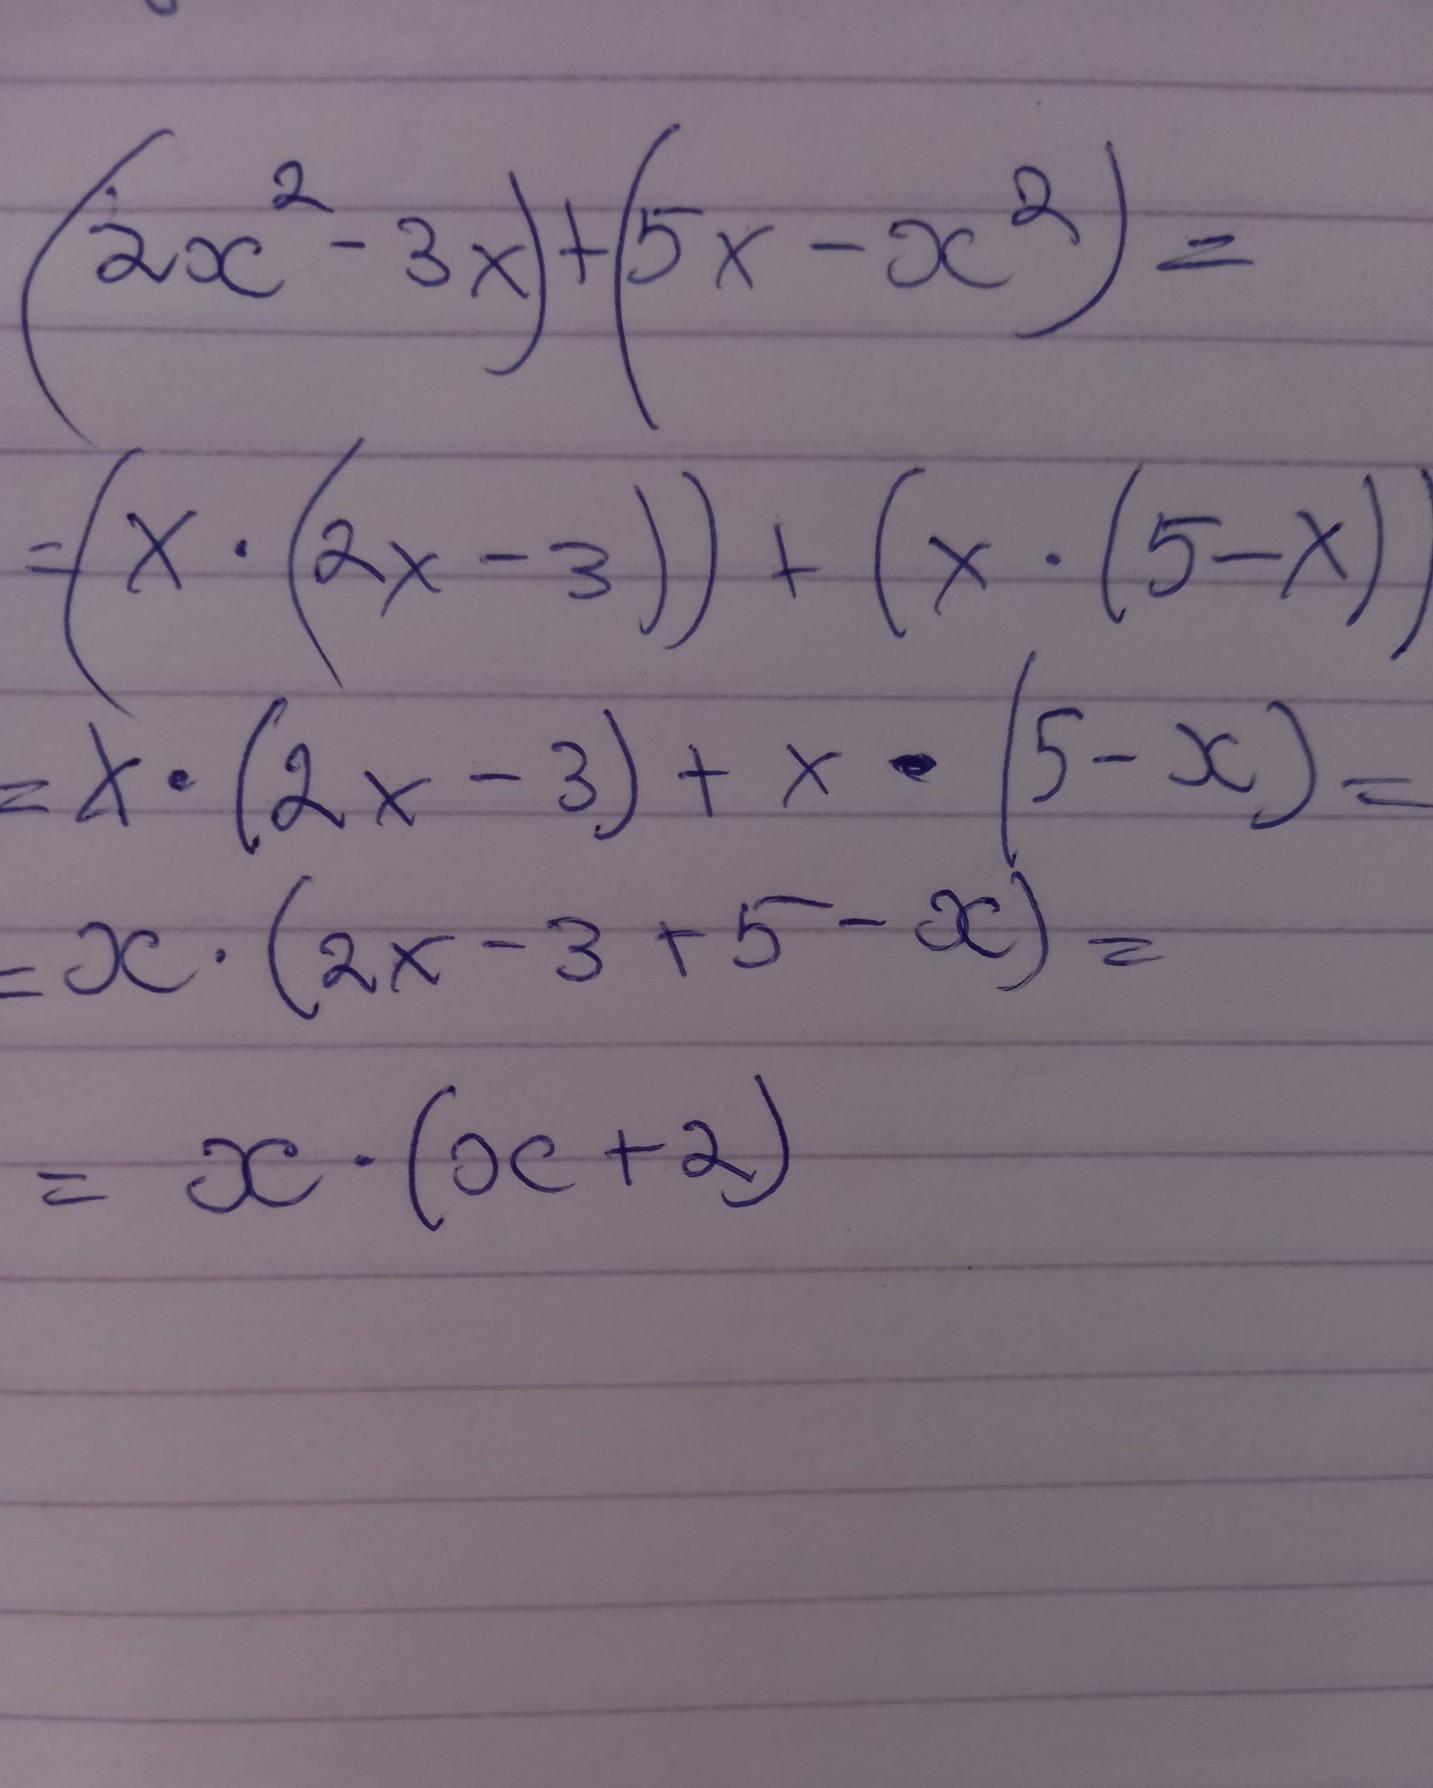 (2x² - 3x) + (5x - x²) =
= (x · (2x - 3)) + (x · (5 - x))
= x · (2x - 3) + x · (5 - x) =
= x · (2x - 3 + 5 - x) =
= x · (x + 2)